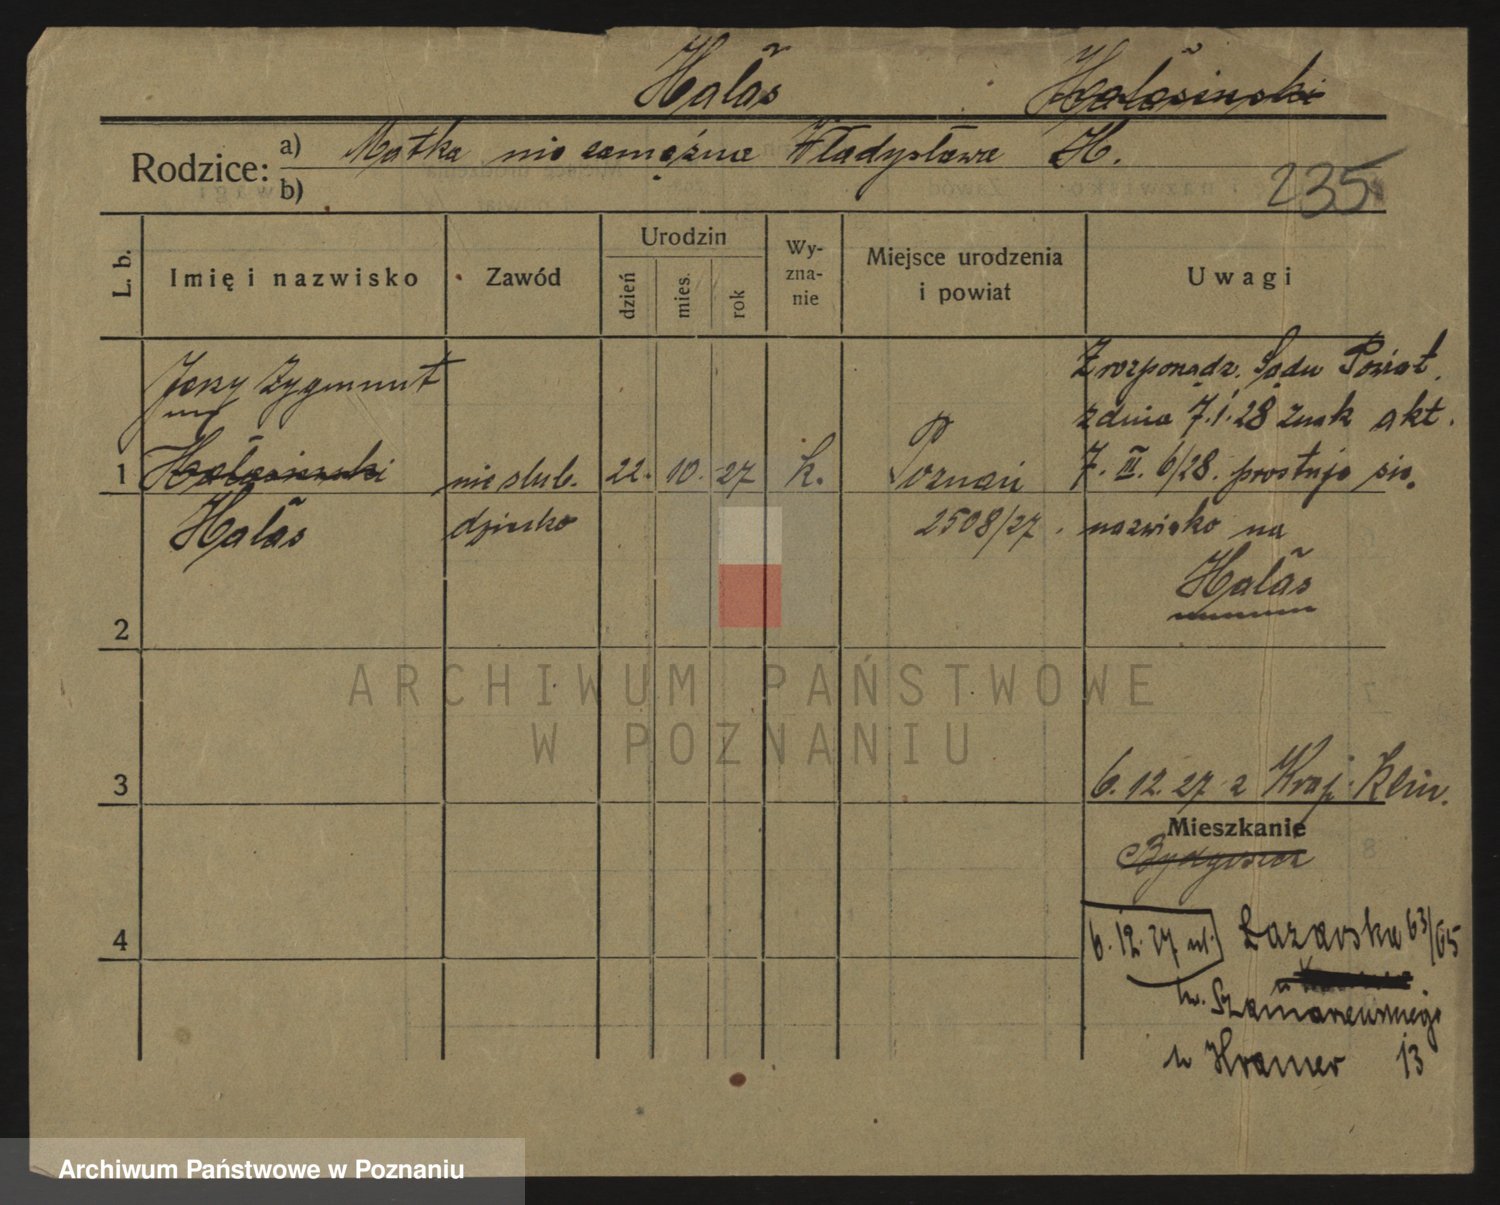 Hałas Hałasinski
Rodzice: a) Matka nie zamężna Władysława H.
b)
235
L. b. Imię i nazwisko Zawód Urodzin dzień mies. rok Wy-zna-nie Miejsce urodzenia i powiat Uwagi
Jerzy Zygmunt
Z rozporządz. Sądu Powiat.
z dnia 7.1.28 znak akt.
1 Hałasinski nieślub. 22. 10. 27 k. Poznań 7. III. 6/28. prostuje się
Hałas dziecko 2508/27. nazwisko na
Hałas
2
ARCHIWUM PAŃSTWOWE
W POZNANIU
3 6.12.27 z Kraj. Klin.
Mieszkanie
Bydgoszcz
4 6.12.27 ul. Łazarska 63/65
Szamarzewskiego
u Kramer 13
Archiwum Państwowe w Poznaniu